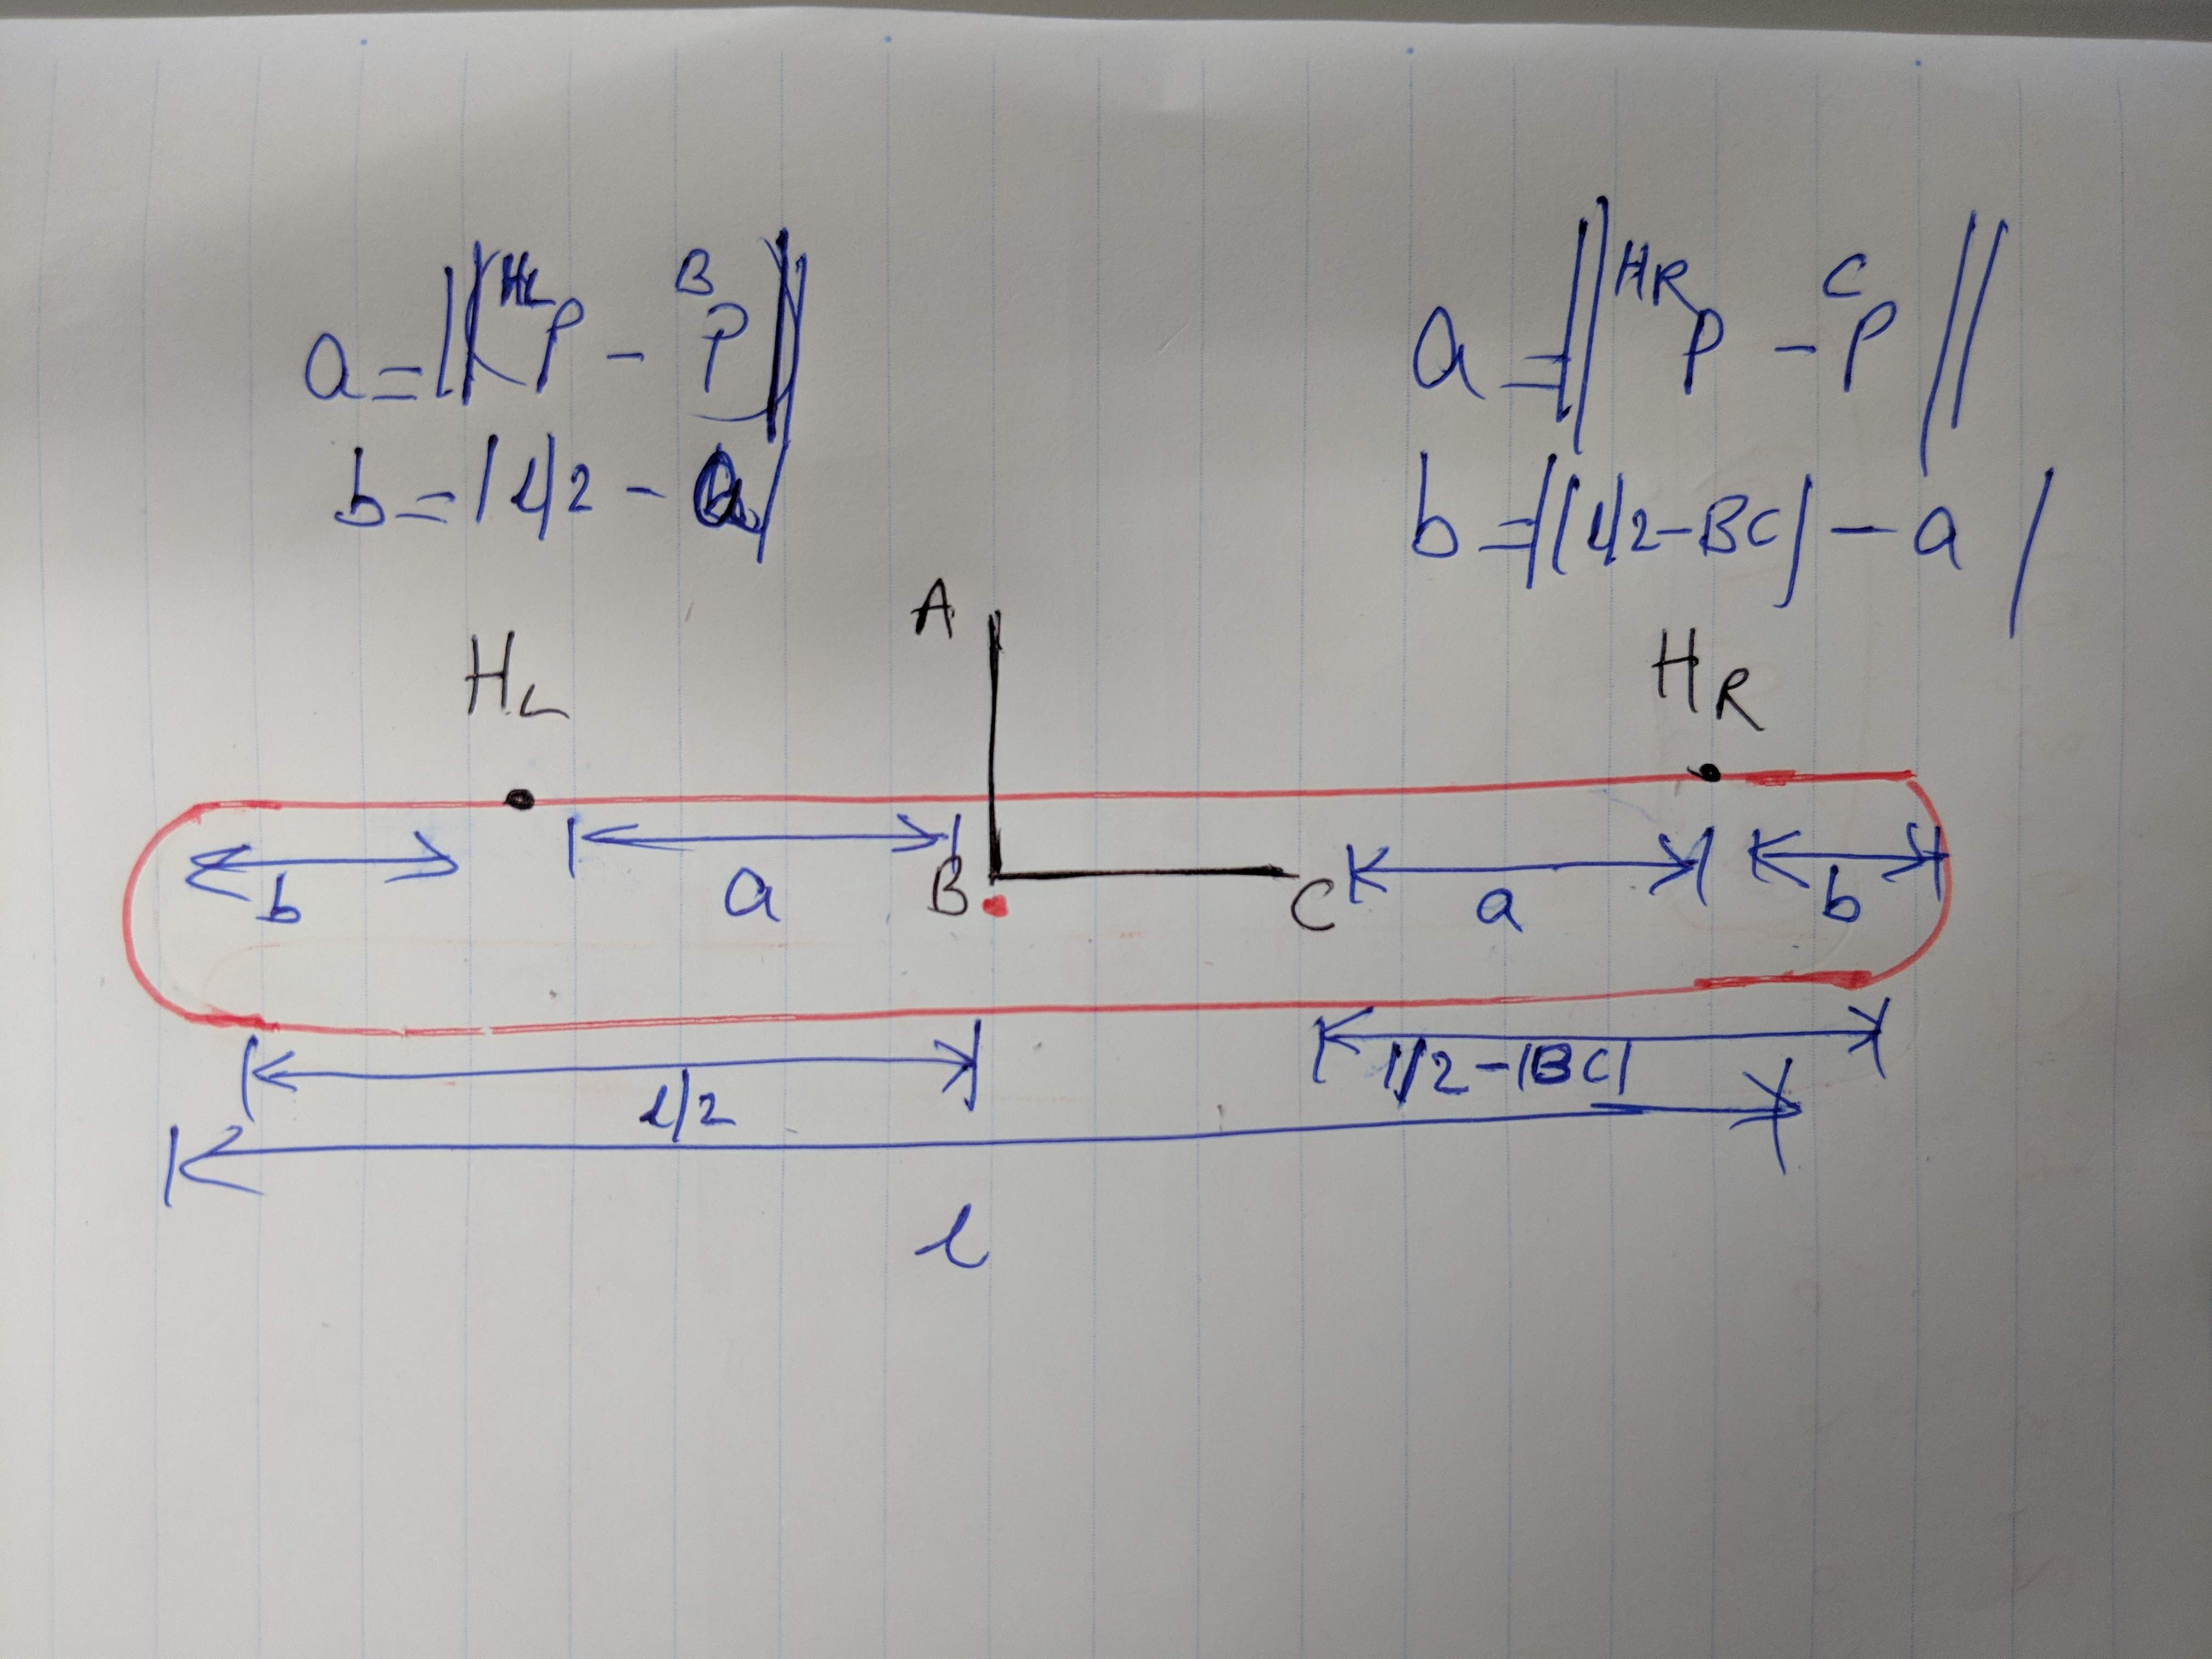 a = ||(ᴴᴸP - ᴮP)||
a = ||ᴴᴿP - ᶜP||
b = |l/2 - a|
b = |(l/2 - BC) - a|
A
H_L
H_R
b
a
B
C
a
b
l/2
l/2 - |BC|
l